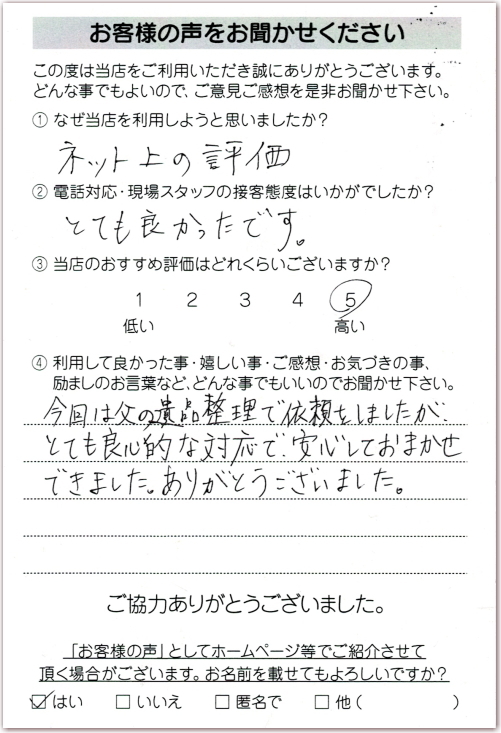 お客様の声をお聞かせください
この度は当店をご利用いただき誠にありがとうございます。
どんな事でもよいので、ご意見ご感想を是非お聞かせ下さい。
① なぜ当店を利用しようと思いましたか？
ネット上の評価
② 電話対応・現場スタッフの接客態度はいかがでしたか？
とても良かったです。
③ 当店のおすすめ評価はどれくらいございますか？
1 2 3 4 5
低い 高い
④ 利用して良かった事・嬉しい事・ご感想・お気づきの事、
励ましのお言葉など、どんな事でもいいのでお聞かせ下さい。
今回は父の遺品整理で依頼をしましたが、
とても良心的な対応で、安心しておまかせ
できました。ありがとうございました。
ご協力ありがとうございました。
「お客様の声」としてホームページ等でご紹介させて
頂く場合がございます。お名前を載せてもよろしいですか？
☑はい □いいえ □匿名で □他（ ）